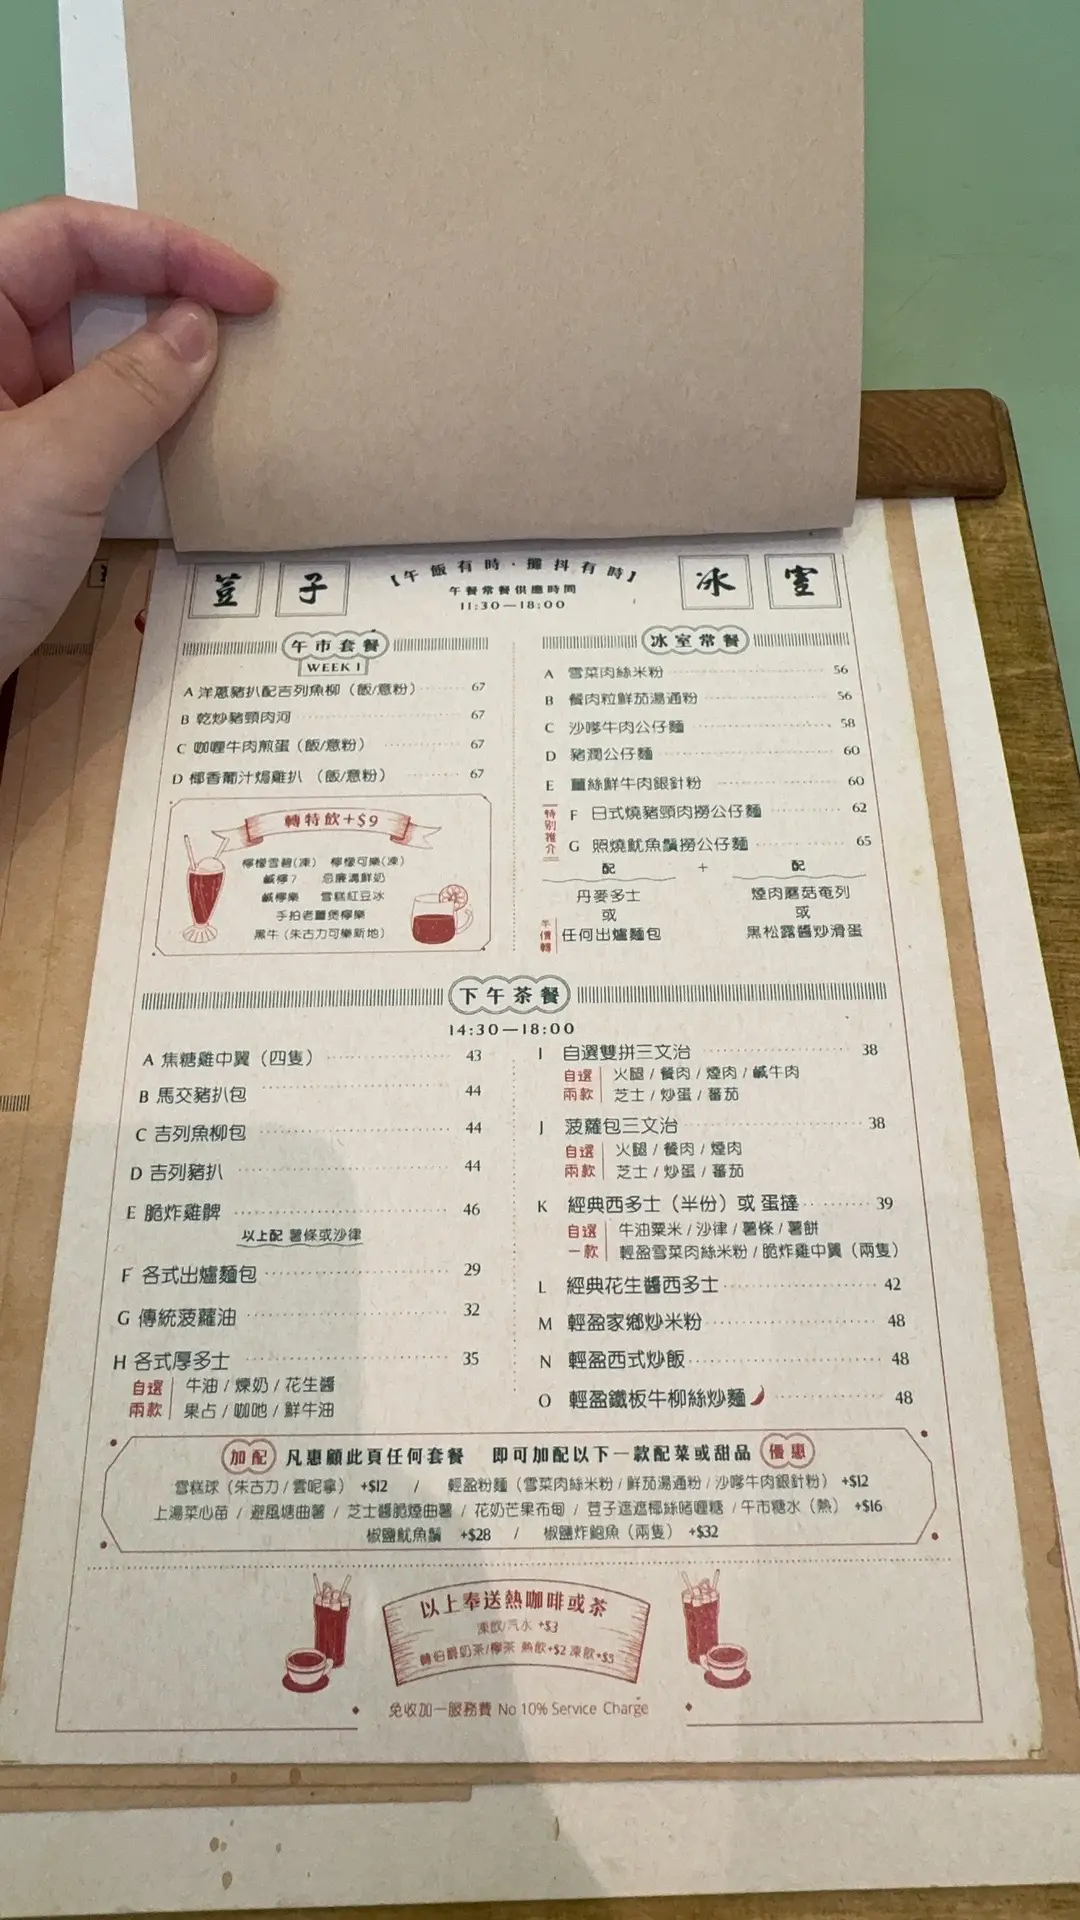 荳子
【午飯有時·攤抖有時】
午餐常餐供應時間
11:30—18:00
冰室
午市套餐
WEEK 1
A 洋蔥豬扒配吉列魚柳（飯/意粉） 67
B 乾炒豬頸肉河 67
C 咖喱牛肉煎蛋（飯/意粉） 67
D 椰香葡汁焗雞扒 （飯/意粉） 67
轉特飲+$9
檸檬雪碧(凍) 檸檬可樂(凍)
鹹檸7 忌廉溝鮮奶
鹹檸樂 雪糕紅豆冰
手拍老薑煲檸樂
黑牛（朱古力可樂新地）
冰室常餐
A 雪菜肉絲米粉 56
B 餐肉粒鮮茄湯通粉 56
C 沙嗲牛肉公仔麵 58
D 豬潤公仔麵 60
E 薑絲鮮牛肉銀針粉 60
特別推介
F 日式燒豬頸肉撈公仔麵 62
G 照燒魷魚鬚撈公仔麵 65
配 + 配
丹麥多士 煙肉蘑菇奄列
或 或
半價轉 任何出爐麵包 黑松露醬炒滑蛋
下午茶餐
14:30—18:00
A 焦糖雞中翼（四隻） 43
B 馬交豬扒包 44
C 吉列魚柳包 44
D 吉列豬扒 44
E 脆炸雞髀 46
以上配 薯條或沙律
F 各式出爐麵包 29
G 傳統菠蘿油 32
H 各式厚多士 35
自選 牛油 / 煉奶 / 花生醬
兩款 果占 / 咖吔 / 鮮牛油
I 自選雙拼三文治 38
自選 火腿 / 餐肉 / 煙肉 / 鹹牛肉
兩款 芝士 / 炒蛋 / 蕃茄
J 菠蘿包三文治 38
自選 火腿 / 餐肉 / 煙肉
兩款 芝士 / 炒蛋 / 蕃茄
K 經典西多士（半份）或 蛋撻 39
自選 牛油粟米 / 沙律 / 薯條 / 薯餅
一款 輕盈雪菜肉絲米粉 / 脆炸雞中翼（兩隻）
L 經典花生醬西多士 42
M 輕盈家鄉炒米粉 48
N 輕盈西式炒飯 48
O 輕盈鐵板牛柳絲炒麵 48
加配 凡惠顧此頁任何套餐 即可加配以下一款配菜或甜品 優惠
雪糕球（朱古力 / 雲呢拿） +$12 / 輕盈粉麵（雪菜肉絲米粉 / 鮮茄湯通粉 / 沙嗲牛肉銀針粉） +$12
上湯菜心苗 / 避風塘曲薯 / 芝士醬脆煙曲薯 / 花奶芒果布甸 / 荳子遮遮椰絲啫喱糖 / 午市糖水（熱） +$16
椒鹽魷魚鬚 +$28 / 椒鹽炸鮑魚（兩隻） +$32
以上奉送熱咖啡或茶
凍飲/汽水 +$3
轉伯爵奶茶/檸茶 熱飲+$2 凍飲+$5
免收加一服務費 No 10% Service Charge